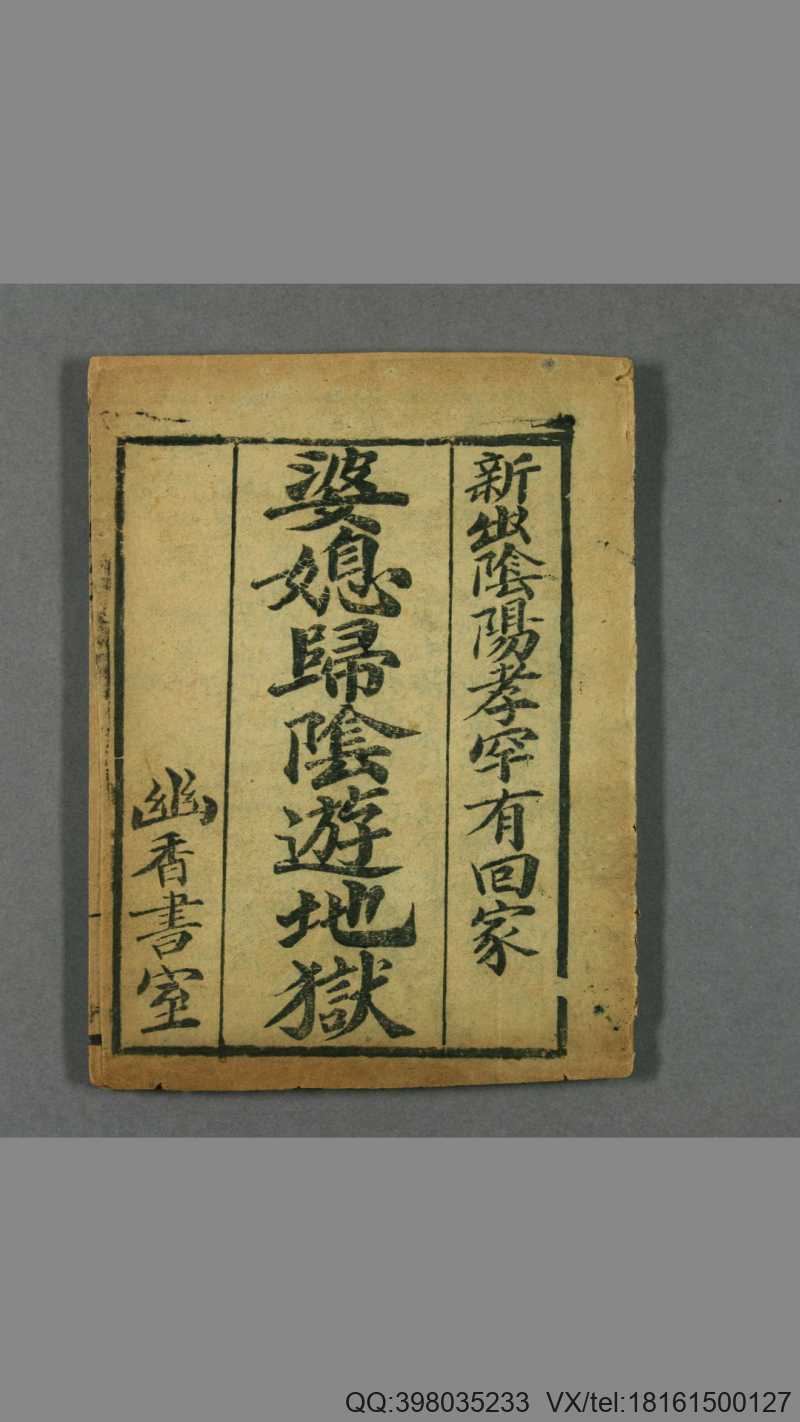 新出陰陽孝罕有回家
婆媳歸陰遊地獄
幽香書室
QQ:398035233 VX/tel:18161500127